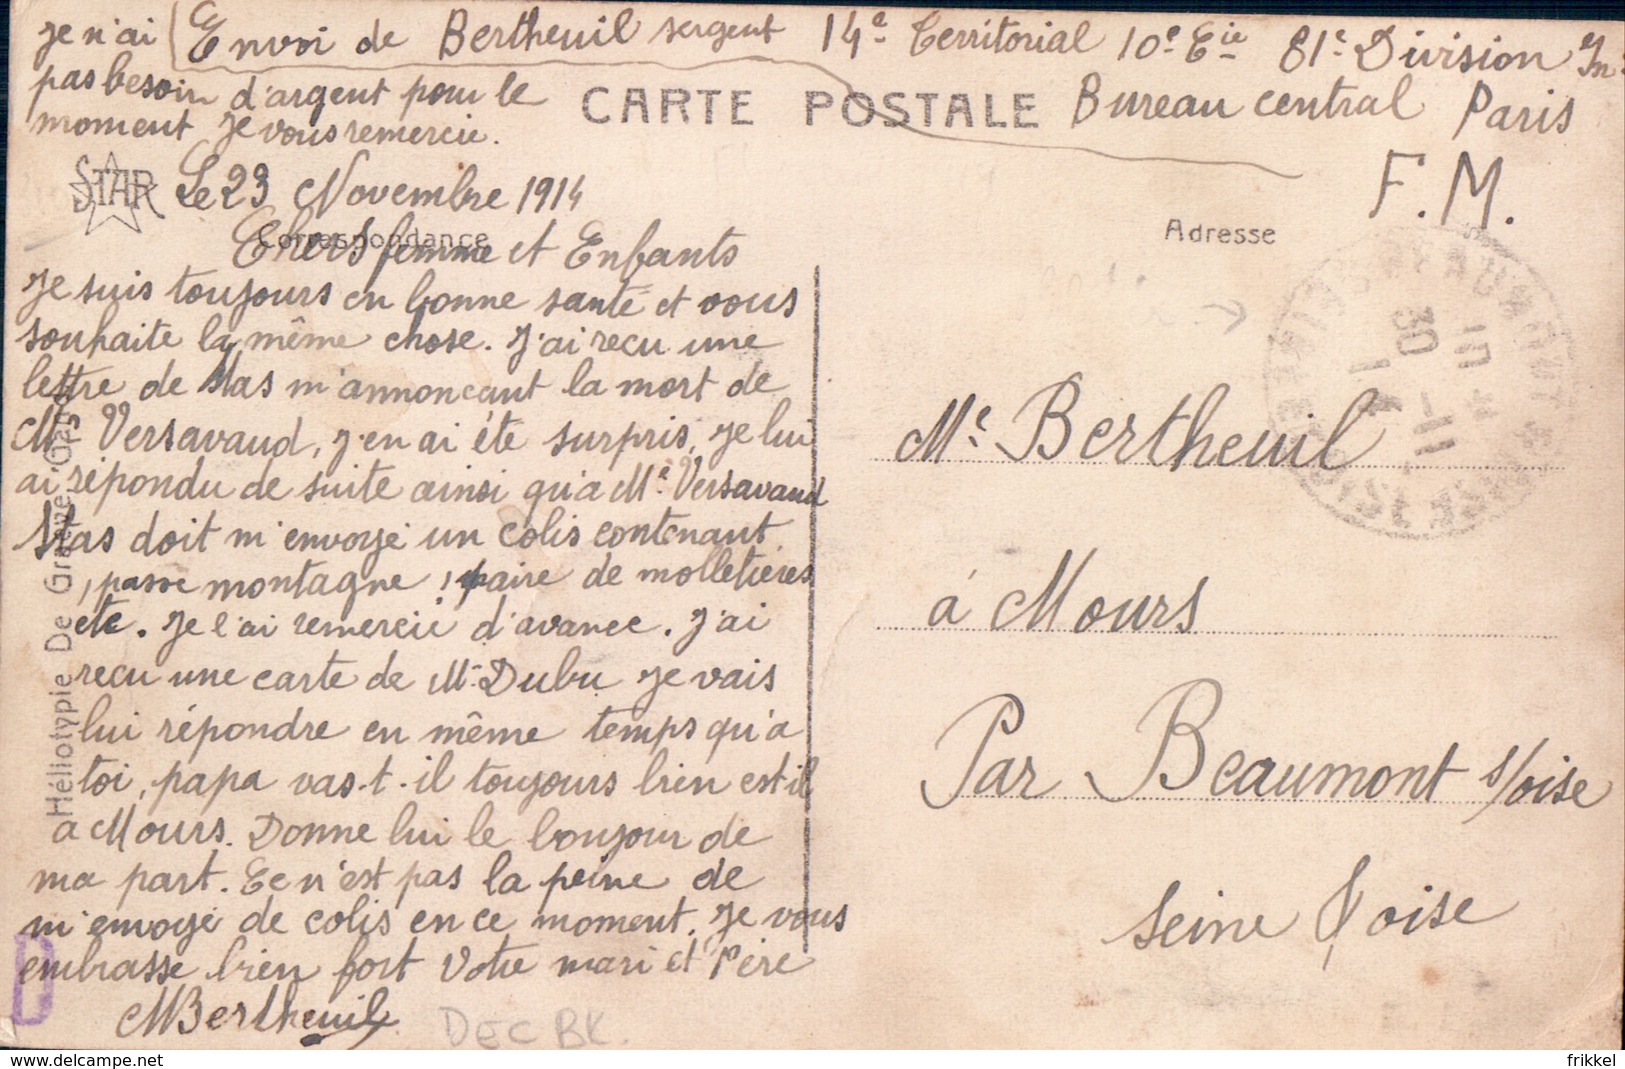 Envoi de Bertheuil sergent 14e Territorial 10e Cie 81e Division
Bureau central Paris
F. M.
je n'ai
pas besoin d'argent pour le
moment Je vous remercie.
CARTE POSTALE
STAR
Le 23 Novembre 1914
Correspondance
Chers femme et Enfants
Je suis toujours en bonne santé et vous
souhaite la même chose. J'ai recu une
lettre de Mas m'annoncant la mort de
Mr Versavaud, j'en ai été surpris, je lui
ai répondu de suite ainsi qu'à Me Versavaud
Mas doit m'envoyé un colis contenant
1 passe montagne, 1 paire de molletières
etc. Je l'ai remercié d'avance. J'ai
recu une carte de Mr Dubu Je vais
lui répondre en même temps qu'à
toi, papa vas-t-il toujours bien est il
a Mours. Donne lui le bonjour de
ma part. Ce n'est pas la peine de
m'envoyé de colis en ce moment. Je vous
embrasse bien fort Votre mari et Père
MBertheuil
DEC BK.
Héliotypie De
Adresse
Me Bertheuil
à Mours
Par Beaumont s/oise
Seine & oise
delcampe.net
frikkel